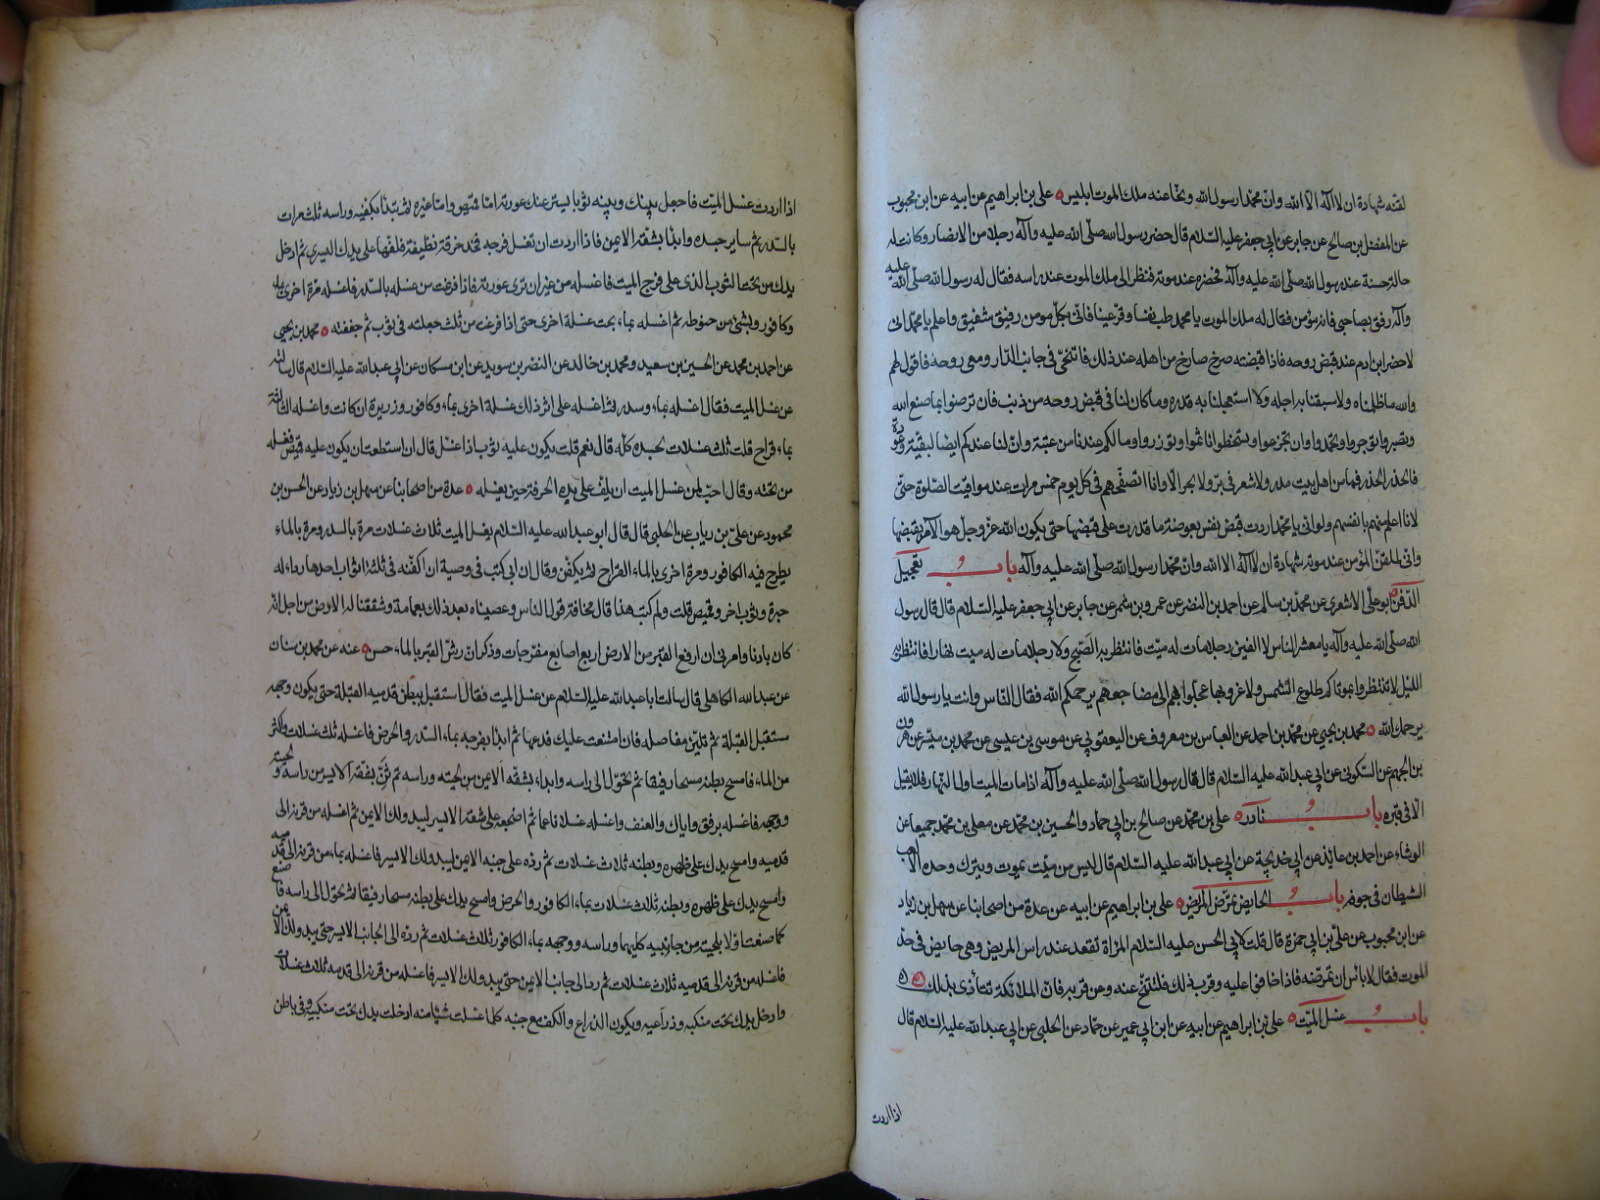 لقنه شهادة ان لا اله الا الله وان محمدا رسول الله ونحا عنه ملك الموت ابليس ه علي بن ابراهيم عن ابيه عن ابن محبوب
عن المفضل بن صالح عن جابر عن ابي جعفر عليه السلام قال حضر رسول الله صلى الله عليه وآله رجلا من الانصار وكانت له
حالة حسنة عند رسول الله صلى الله عليه وآله فحضره عند موته فنظر الى ملك الموت عند راسه فقال له رسول الله صلى الله عليه
وآله رفق بصاحبي فانه مؤمن فقال له ملك الموت يا محمد طب نفسا وقر عينا فاني بكل مومن رفيق شفيق واعلم يا محمد اني
لاحضر ابن ادم عند قبض روحه فاذا قبضته صرخ صارخ من اهله عند ذلك فاتنحى في جانب الدار ومعي روحه فاقول لهم
والله ما ظلمناه ولا سبقنا به اجله ولا استعجلنا به قدره وما كان لنا في قبض روحه من ذنب فان ترضوا بما صنع الله
وتصبروا توجروا وتحمدوا وان تجزعوا وتسخطوا تاثموا وتوزروا وما لكم عندنا من عتبة وان لنا عندكم ايضا لبقية وعودة
فالحذر الحذر فما من اهل بيت مدر ولا شعر في بر ولا بحر الا وانا اتصفحهم في كل يوم خمس مرات عند مواقيت الصلوة حتى
لانا اعلم منهم بانفسهم ولو اني يا محمد اردت قبض نفس بعوضة ما قدرت على قبضها حتى يكون الله عز وجل هو الآمر بقبضها
واني لملقن المؤمن عند موته شهادة ان لا اله الا الله وان محمدا رسول الله صلى الله عليه وآله باب تعجيل
الدفن ه ابو علي الاشعري عن محمد بن سالم عن احمد بن النضر عن عمرو بن شمر عن جابر عن ابي جعفر عليه السلام قال قال رسول
الله صلى الله عليه وآله يا معشر الناس لا الفين رجلا مات له ميت فانتظر به الصبح ولا رجلا مات له ميت نهارا فانتظر به
الليل لا تنتظروا بموتاكم طلوع الشمس ولا غروبها عجلوا بهم الى مضاجعهم يرحمكم الله فقال الناس وانت يا رسول الله
يرحمك الله ه محمد بن يحيى عن محمد بن احمد عن العباس بن معروف عن اليعقوبي عن موسى بن عيسى عن محمد بن ميسر عن هرون
بن الجهم عن السكوني عن ابي عبد الله عليه السلام قال قال رسول الله صلى الله عليه وآله اذا مات الميت اول النهار فلا يقيل
الا في قبره باب نادر ه علي بن محمد عن صالح بن ابي حماد والحسين بن محمد عن معلى بن محمد جميعا عن
الوشاء عن احمد بن عائذ عن ابي خديجة عن ابي عبد الله عليه السلام قال ليس من ميت يموت ويترك وحده الا لعب
الشيطان في جوفه باب الحايض تمرض المريض ه علي بن ابراهيم عن ابيه عن عدة من اصحابنا عن سهل بن زياد
عن ابن محبوب عن علي بن ابي حمزة قال قلت لابي الحسن عليه السلام المراة تقعد عند راس المريض وهي حايض في حد
الموت فقال لا باس ان تمرضه فاذا خافوا عليه وقرب ذلك فلتنتح عنه وعن قربه فان الملائكة تتأذى بذلك ه
باب غسل الميت ه علي بن ابراهيم عن ابيه عن ابن ابي عمير عن حماد عن الحلبي عن ابي عبد الله عليه السلام قال
اذا اردت
اذا اردت غسل الميت فاجعل بينك وبينه ثوبا يستر عنك عورته اما قميص واما غيره ثم تبدا بكفيه وراسه ثلث مرات
بالسدر ثم ساير جسده وابدا بشقه الايمن فاذا اردت ان تغسل فرجه فخذ خرقة نظيفة فلفها على يدك اليسرى ثم ادخل
يدك من تحت الثوب الذي على فرج الميت فاغسله من غير ان ترى عورته فاذا فرغت من غسله بالسدر فاغسله مرة اخرى بماء
وكافور وبشئ من حنوطه ثم اغسله بماء بحت غسلة اخرى حتى اذا فرغت من ثلث جعلته في ثوب ثم جففته ه محمد بن يحيى
عن احمد بن محمد عن الحسين بن سعيد ومحمد بن خالد عن النضر بن سويد عن ابن مسكان عن ابي عبد الله عليه السلام قال سالته
عن غسل الميت فقال اغسله بماء وسدر ثم اغسله على اثر ذلك غسلة اخرى بماء وكافور وزريرة ان كانت واغسله الثالثة
بماء قراح قلت ثلث غسلات لجسده كله قال نعم قلت يكون عليه ثوب اذا غسل قال ان استطعت ان يكون عليه قميص فغسله
من تحته وقال احب لمن غسل الميت ان يلف على يده الخرقة حين يغسله ه عدة من اصحابنا عن سهل بن زياد عن الحسن بن
محبوب عن علي بن رياب عن الحلبي قال قال ابو عبد الله عليه السلام يغسل الميت ثلاث غسلات مرة بالسدر ومرة بالماء
يطرح فيه الكافور ومرة اخرى بالماء القراح ثم يكفن وقال ان ابي كتب في وصية ان اكفنه في ثلثة اثواب احدها رداء له
حبرة وثوب اخر وقميص قلت ولم كتب هذا قال مخافة قول الناس وعصبناه بعد ذلك بعمامة وشققنا له الارض من اجل انه
كان بادنا وامرني ان ارفع القبر من الارض اربع اصابع مفرجات وذكر ان رش القبر بالماء حسن ه عنه عن محمد بن سنان
عن عبد الله الكاهلي قال سالت ابا عبد الله عليه السلام عن غسل الميت فقال استقبل ببطن قدميه القبلة حتى يكون وجهه
مستقبل القبلة ثم تلين مفاصله فان امتنعت عليك فدعها ثم ابدا بفرجه بماء السدر والحرض فاغسله ثلث غسلات واكثر
من الماء فامسح بطنه مسحا رفيقا ثم تحول الى راسه وابدا بشقه الايمن من لحيته وراسه ثم ثن بشقه الايسر من راسه ولحيته
ووجهه فاغسله برفق واياك والعنف واغسله غسلا ناعما ثم اضجعه على شقه الايسر ليبدو لك الايمن ثم اغسله من قرنه الى
قدميه وامسح يدك على ظهره وبطنه ثلاث غسلات ثم رده على جنبه الايمن ليبدو لك الايسر فاغسله بماء من قرنه الى قدميه
وامسح يدك على ظهره وبطنه ثلاث غسلات بماء الكافور والحرض وامسح يدك على بطنه مسحا رفيقا ثم تحول الى راسه فاصنع
كما صنعت اولا بلحيته من جانبيه كليهما وراسه ووجهه بماء الكافور ثلاث غسلات ثم رده الى الجانب الايسر حتى يبدو لك الايمن
فاغسله من قرنه الى قدميه ثلاث غسلات ثم رده الى جانب الايمن حتى يبدو لك الايسر فاغسله من قرنه الى قدميه ثلاث غسلات
وادخل يدك تحت منكبيه وذراعيه ويكون الذراع والكف مع جنبه كلما غسلت شيئا منه ادخلت يدك تحت منكبيه وفي باطن